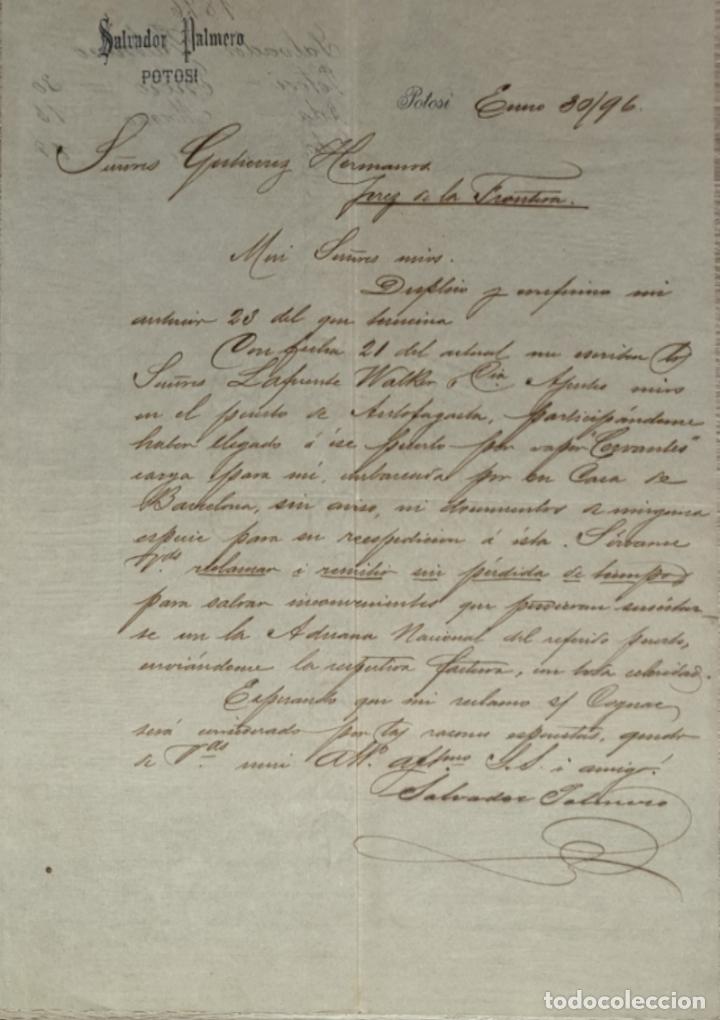 Salvador Palmero
POTOSI
Potosi Enero 30/96.
Señores Gutierrez Hermanos
Jerez de la Frontera.
Mui Señores mios.
Duplico y confirmo mi
anterior 23 del que termina
Con fecha 21 del actual me escriben los
Señores Lafuente Walker Cia. Ajentes mios
en el puerto de Antofagasta, participándome
haber llegado á ese puerto por vapor "Cervantes"
carga para mi, embarcada por en Casa de
Barcelona, sin aviso, ni documentos de ninguna
especie para su reespedicion á ésta. Sírvanse
Vds. reclamar i remitir sin pérdida de tiempo
para salvar inconvenientes que pudieran suscitar-
se en la Aduana Nacional del referido puerto,
enviándome la respectiva factura, con toda celeridad.
Esperando que mi reclamo s/ Cognac
será considerado por las razones espuestas, quedo
de Vds. mui Atto. affmo S.S. i amigo.
Salvador Palmero
todocoleccion